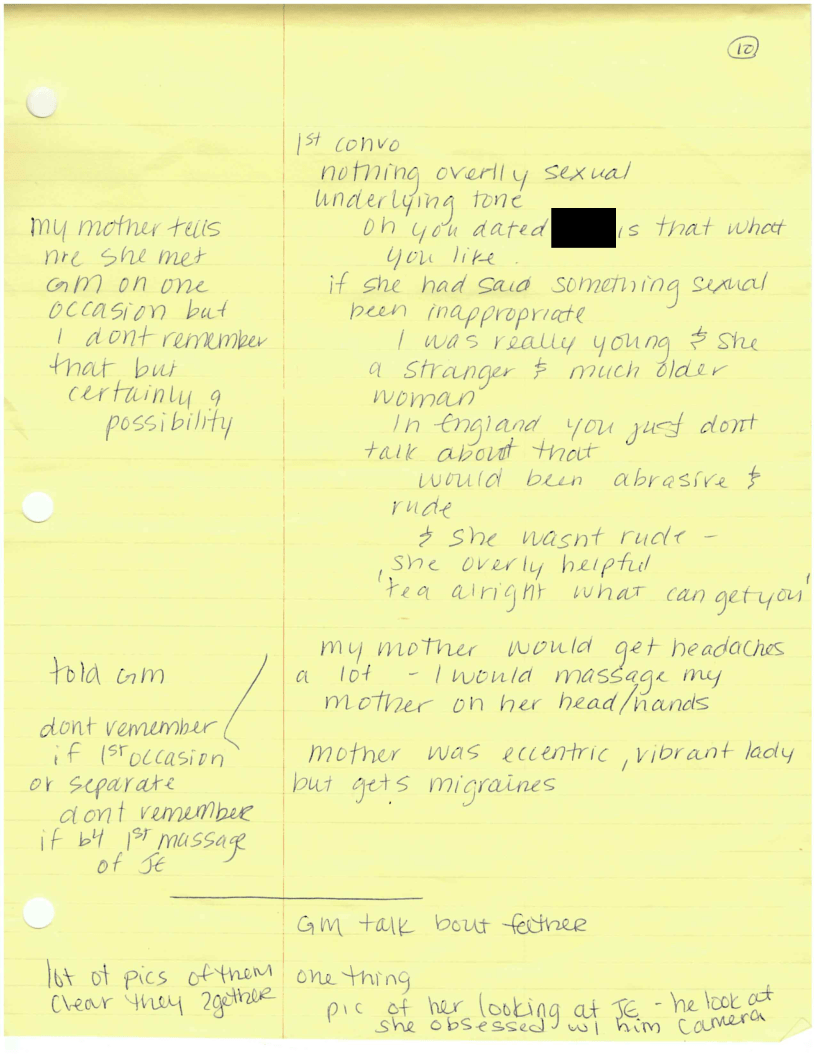 10
1st convo
nothing overlly sexual
underlying tone
my mother tells
me she met
GM on one
occasion but
I dont remember
that but
certainly a
possibility
oh you dated is that what
you like.
if she had said something sexual
been inappropriate
I was really young & she
a stranger & much older
woman
In England you just dont
talk about that
would been abrasive &
rude
& she wasnt rude -
she overly helpful
'tea alright what can get you'
told GM
dont remember
if 1st occasion
or separate
dont remember
if b4 1st massage
of JE
my mother would get headaches
a lot - I would massage my
mother on her head/hands
mother was eccentric, vibrant lady
but gets migraines
GM talk bout father
lot of pics of them
clear they 2gether
one thing
pic of her looking at JE - he look at
she obsessed w/ him camera